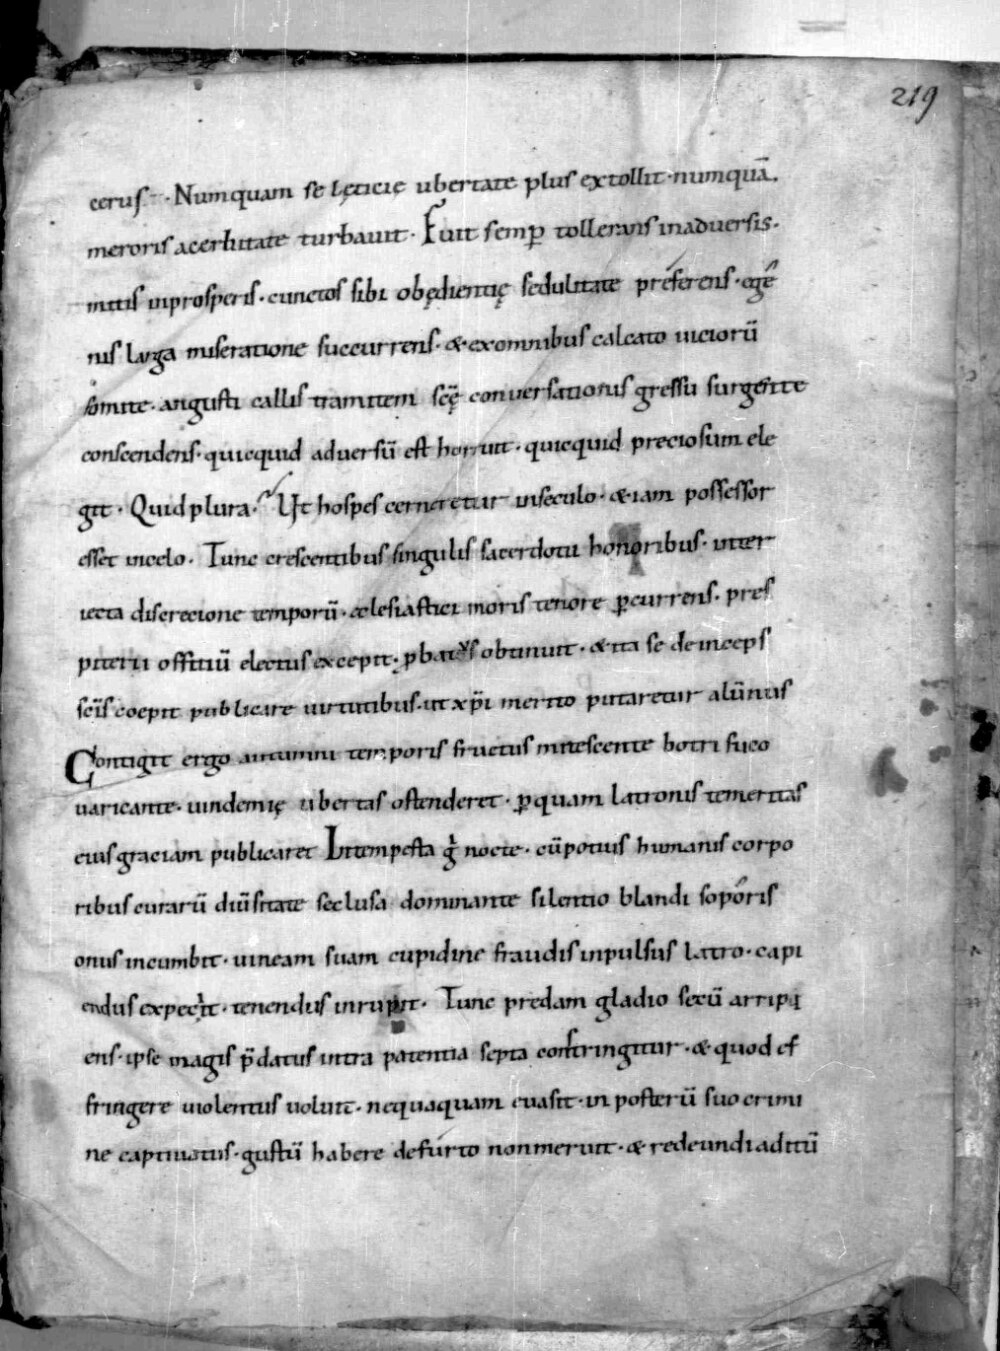 219
cerus · Numquam se lęticię ubertate plus extollit · numquā ·
meroris acerbitate turbavit · Fuit semꝑ tollerans in adversis ·
mitis inprosperis · cunctos sibi obędientię sedulitate preferens · egē
nis larga miseratione succurrens · & exomnibus calcato viciorū
fomite · angusti callis tramitem scę̄ conversationis gressu surgente
conscendens · quicquid adversū est horruit · quicquid preciosum ele
git · Quid plura · Ut hospes cerneretur inseculo · & iam possessor
esset incelo · Tunc crescentibus singulis sacerdotii honoribus · inter
iecta discrecione temporū · ęclesiastici moris tenore ꝑcurrens · pres
piterii offitiū electus excepit · ꝓbatus obtinuit · & ita se deinceps
scīs coepit publicare virtutibus · ut xp̄i merito putaretur alūnus
Contigit ergo autumni temporis fructus mitescente botri suco
varicante · vindemię ubertas ostenderet · ꝑquam latronis temeritas
eius graciam publicaret Intempesta g̊ nocte · cū potius humanis corpo
ribus curarū diūsitate seclusa dominante silentio blandi soporis
onus incumbit · vineam suam cupidine fraudis inpulsus latro · capi
endus expecīt · tenendus inrupit · Tunc predam gladio secū arripi
ens · ipse magis p̄datus intra patentia septa confringitur · & quod ef
fringere violentus voluit · nequaquam evasit · in posterū suo crimi
ne captivatus · gustū habere defurto nonmeruit · & redeundi aditū